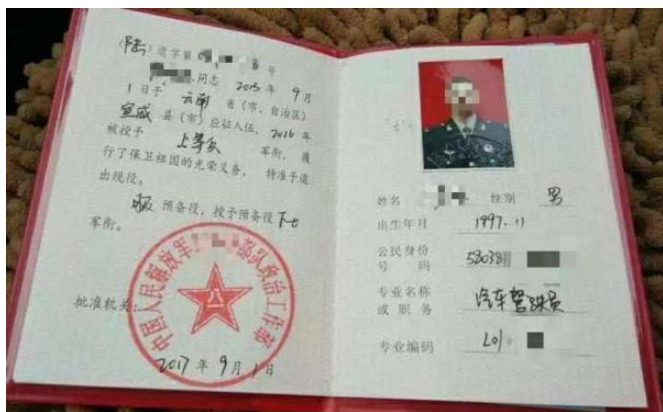 (陆)退字第 号
同志 2015 年 9 月
1 日于 云南 省(市、自治区)
宣威 县(市)应征入伍, 2016 年
被授予 上等兵 军衔, 履
行了保卫祖国的光荣义务, 特准予退
出现役。
服 预备役, 授予预备役 下士
军衔。
中国人民解放军 政治工作部
批准机关:
2017 年 9 月 1 日
姓名 性别 男
出生年月 1997.11
公民身份
号 码 58038
专业名称 汽车驾驶员
或职务
专业编码 201